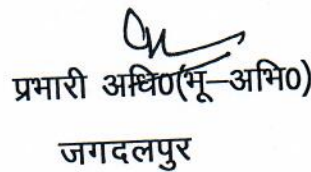 प्रभारी अधि0(भू–अभि0)
जगदलपुर